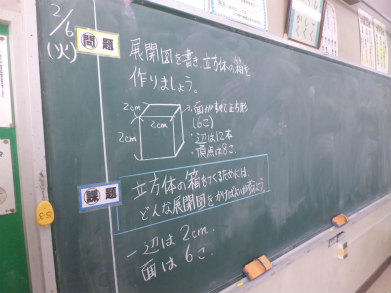 2/6
(火)
問題
展開図を書き、立方体の箱を
作りましょう。
2cm
2cm
2cm
・面がすべて正方形
(6こ)
・辺は12本
・頂点は8こ。
課題
立方体の箱をつくるためには、
どんな展開図をかけばよいか考えよう
一辺は2cm.
面は6こ.